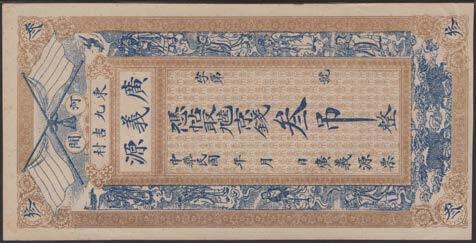 河間
東九吉村
廣義源
字第 號
憑帖取 錢叁吊整
中華民國 年 月 日廣義源票